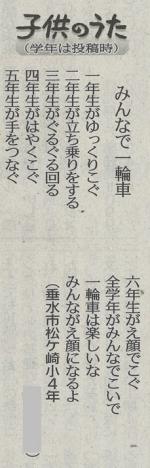 子供のうた
(学年は投稿時)
みんなで一輪車
一年生がゆっくりこぐ
二年生が立ち乗りをする
三年生がぐるぐる回る
四年生がはやくこぐ
五年生が手をつなぐ
六年生がえ顔でこぐ
全学年がみんなでこいで
一輪車は楽しいな
みんながえ顔になるよ
(垂水市松ケ崎小4年 )